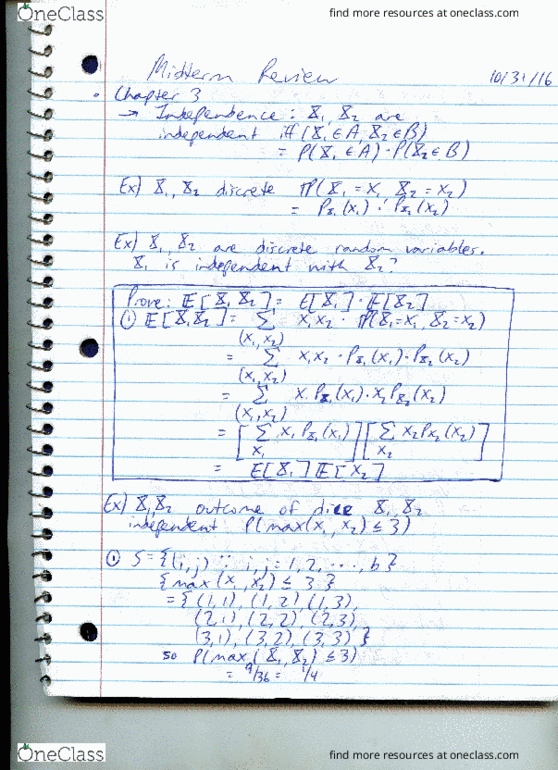 OneClass
find more resources at oneclass.com
Midterm Review 10/31/16
• Chapter 3
→ Independence: X₁, X₂ are
independent if (X₁ ∈ A, X₂ ∈ B)
= P(X₁ ∈ A) · P(X₂ ∈ B)
Ex) X₁, X₂ discrete P(X₁ = x₁, X₂ = x₂)
= Px₁(x₁) · Px₂(x₂)
Ex) X₁, X₂ are discrete random variables.
X₁ is independent with X₂?
Prove: E[X₁X₂] = E[X₁] · E[X₂]
① E[X₁X₂] = Σ x₁x₂ · P(X₁=x₁, X₂=x₂)
(x₁,x₂)
= Σ x₁x₂ · Px₁(x₁) · Px₂(x₂)
(x₁,x₂)
= Σ x₁ Px₁(x₁) · x₂ Px₂(x₂)
(x₁,x₂)
= [Σ x₁ Px₁(x₁)] [Σ x₂ Px₂(x₂)]
x₁ x₂
= E[X₁] E[X₂]
Ex) X₁, X₂ outcome of dice X₁, X₂
independent P(max(x₁, x₂) ≤ 3)
① S = {(i,j) : i,j = 1, 2, ..., 6}
{max(x₁, x₂) ≤ 3}
= {(1,1), (1,2), (1,3),
(2,1), (2,2), (2,3),
(3,1), (3,2), (3,3)}
so P(max(X₁, X₂) ≤ 3)
= 9/36 = 1/4
OneClass
find more resources at oneclass.com